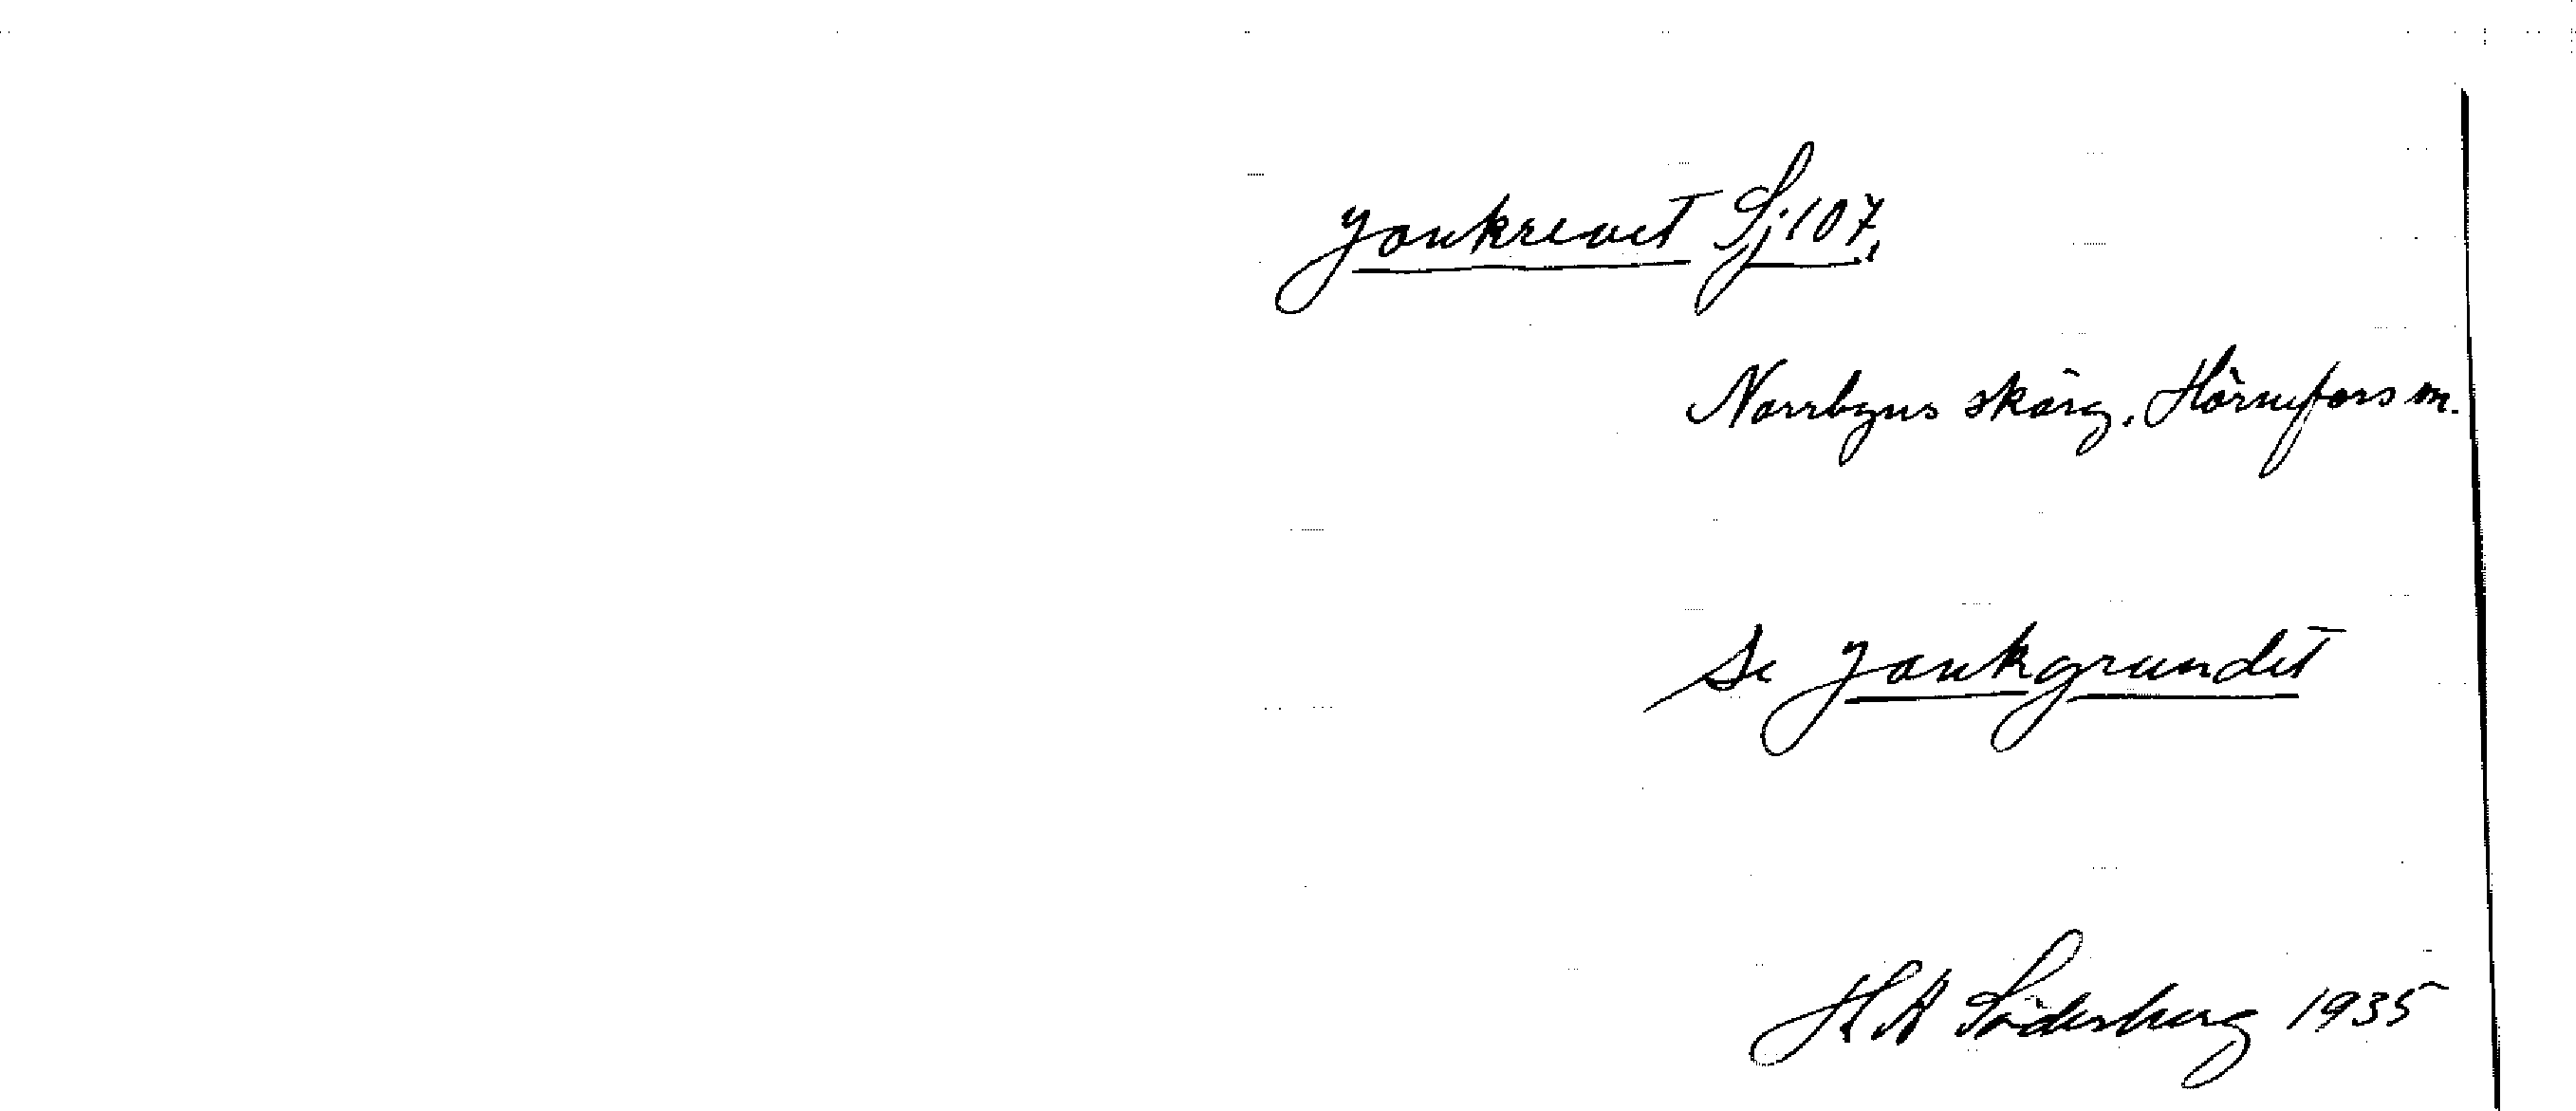 Jonkrevet Sj. 107.
Norrbyns skärg. Hörnefors sn.
Se Jonkgrundet
H A Söderberg 1935